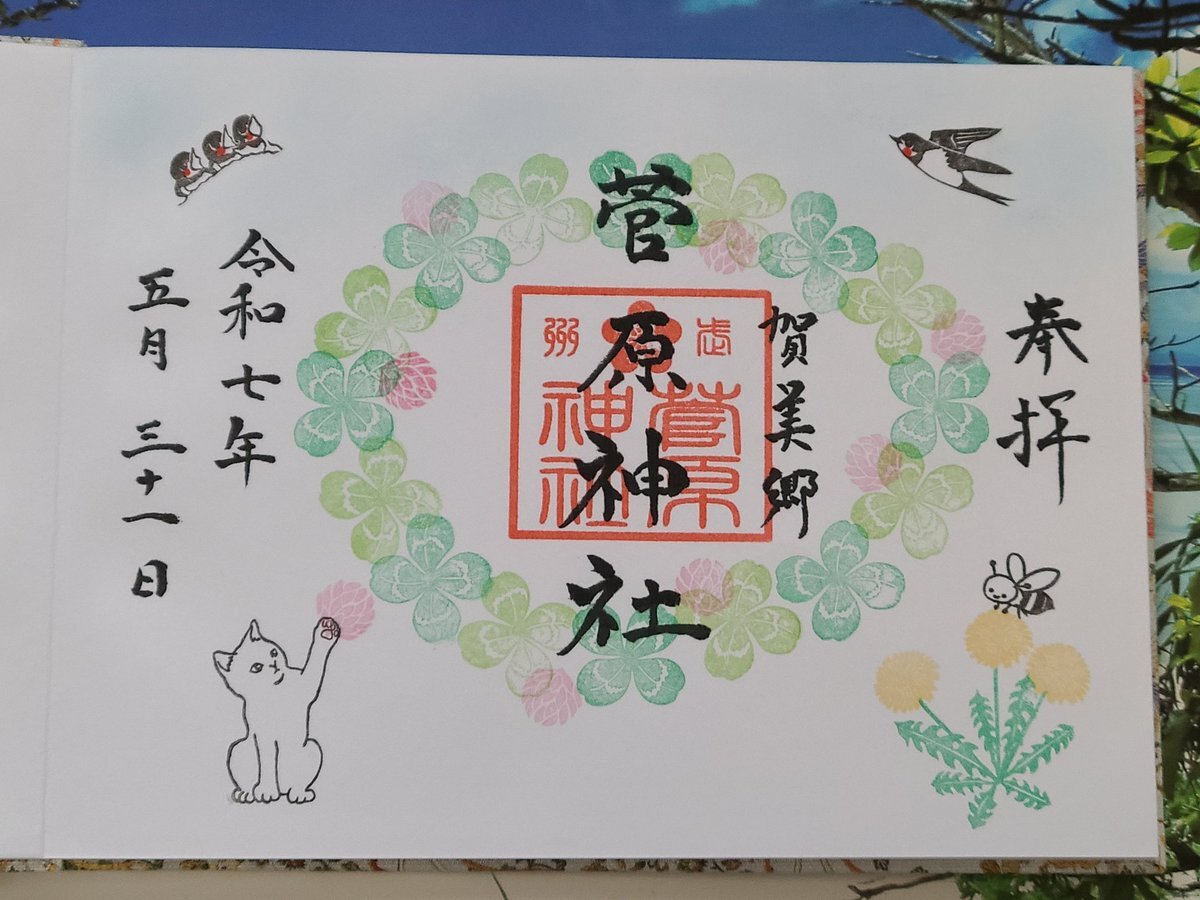 奉拝
賀美郷
菅原神社
武州
菅原
神社
令和七年
五月三十一日